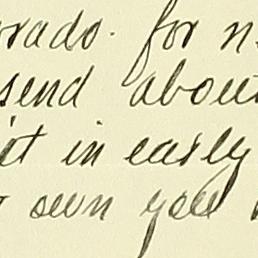 rado. for
send about
it in early
own you